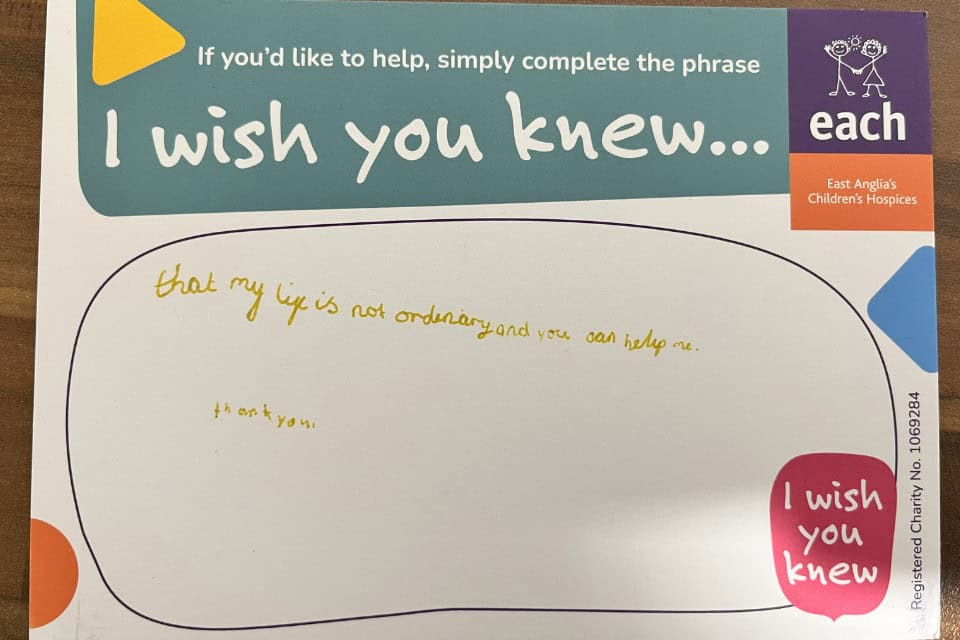 If you'd like to help, simply complete the phrase
I wish you knew...
each
East Anglia's
Children's Hospices
that my life is not ordenary and you can help me.
thank you.
I wish
you
knew
Registered Charity No. 1069284